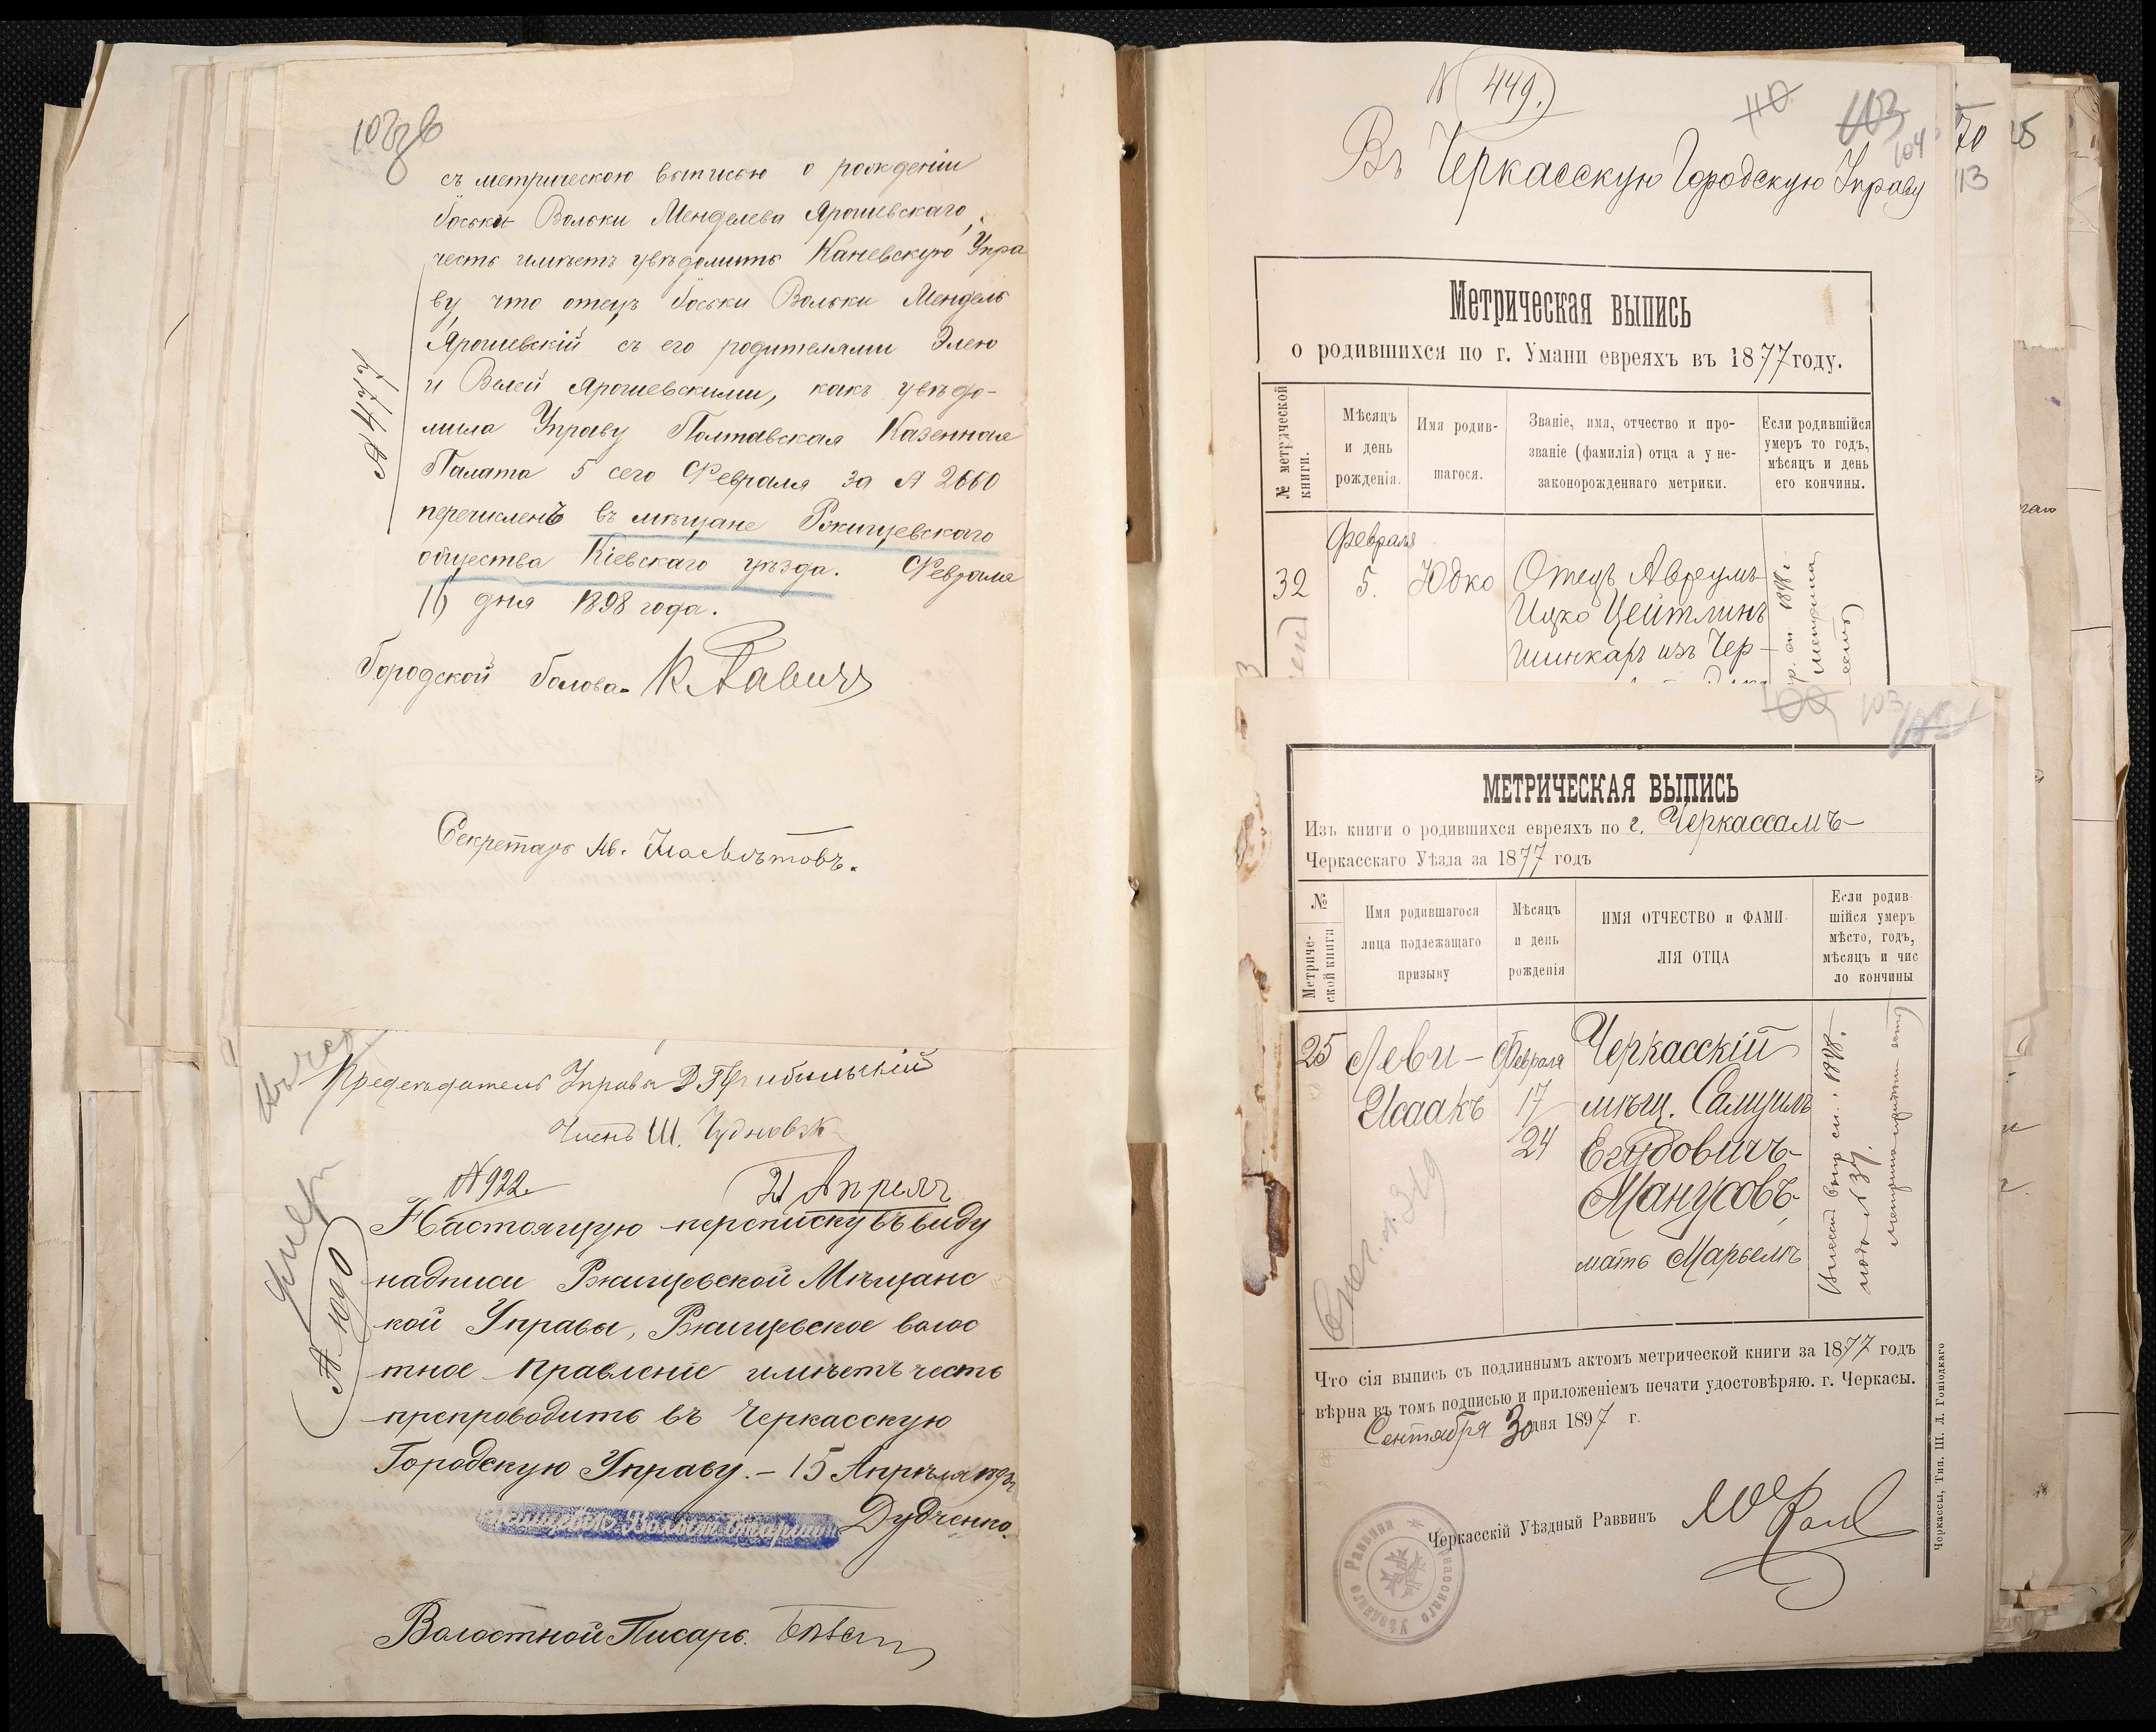 съ метрическою выписью о рожденіи
Іоська Вольки Менделева Ярошевскаго,
честь имѣетъ увѣдомить Каневскую Упра
ву, что отецъ Іоськи Вольки Мендель
Ярошевскій съ его родителями Элею
и Велей Ярошевскими, какъ увѣдо-
мила Управу Полтавская Казенная
Палата 5 сего Февраля за № 2660
перечисленъ въ мѣщане Ржищевскаго
общества Кіевскаго уѣзда. Февраля
16 дня 1898 года.
Городской Голова
Секретарь
Предсѣдатель Управы
Членъ Ш. Чудновск
№ 922. 21 Апрѣля
Настоящую переписку въ виду
надписи Ржищевской Мѣщанс
кой Управы, Ржищевское волос
тное Правленіе имѣетъ честь
препроводить въ Черкасскую
Городскую Управу. – 15 Апрѣля
Дудченко.
Волостной Писарь
№ 449.
110 103
104
70
13
Въ Черкасскую Городскую Управу
Метрическая выпись
о родившихся по г. Умани евреяхъ въ 1877 году.
№ метрической книги.
Мѣсяцъ и день рожденія.
Имя родив-
шагося.
Званіе, имя, отчество и про-
званіе (фамилія) отца а у не-
законорожденнаго метрики.
Если родившійся
умеръ то годъ,
мѣсяцъ и день
его кончины.
Февраля
32 5. Юдко Отецъ Авреумъ
Ицко Цейтлинъ
шинкарь изъ Чер-
100 103
МЕТРИЧЕСКАЯ ВЫПИСЬ
Изъ книги о родившихся евреяхъ по г. Черкассамъ
Черкасскаго Уѣзда за 1877 годъ
№ Метриче-
ской книги
Имя родившагося
лица подлежащаго
призыву
Мѣсяцъ
и день
рожденія
ИМЯ ОТЧЕСТВО и ФАМИ-
ЛІЯ ОТЦА
Если родив-
шійся умеръ
мѣсто, годъ,
мѣсяцъ и чис
ло кончины
25 Леви – Февраля Черкасскій
Исаакъ 17 мѣщ. Самуилъ
24 Егудовичъ
Манусовъ
мать Марьемъ
Что сія выпись съ подлиннымъ актомъ метрической книги за 1877 годъ
вѣрна въ томъ подписью и приложеніемъ печати удостовѣряю. г. Черкасы.
Сентября 30 дня 1897 г.
Черкасскій Уѣздный Раввинъ
Черкассы, Тип. Ш. Л. Гоніодкаго